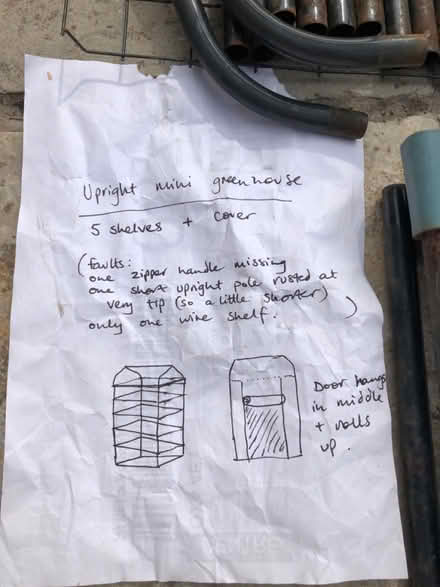 Upright mini greenhouse
5 shelves + cover
(faults:
one zipper handle missing
one short upright pole rusted at
very tip (so a little shorter)
only one wire shelf. )
Door hangs
in middle
+ rolls
up.